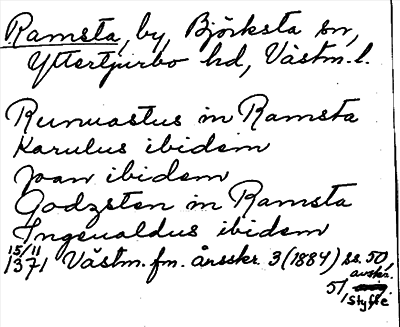 Ramsta, by, Björksta sn,
Yttertjurbo hd, Västm. l.
Runuastus in Ramsta
Karulus ibidem
Joan ibidem
Godzsten in Ramsta
Ingeualdus ibidem
15/11
1371 Västm. fm. årsskr. 3 (1884) ss. 50,
51, avskr.
Styffe